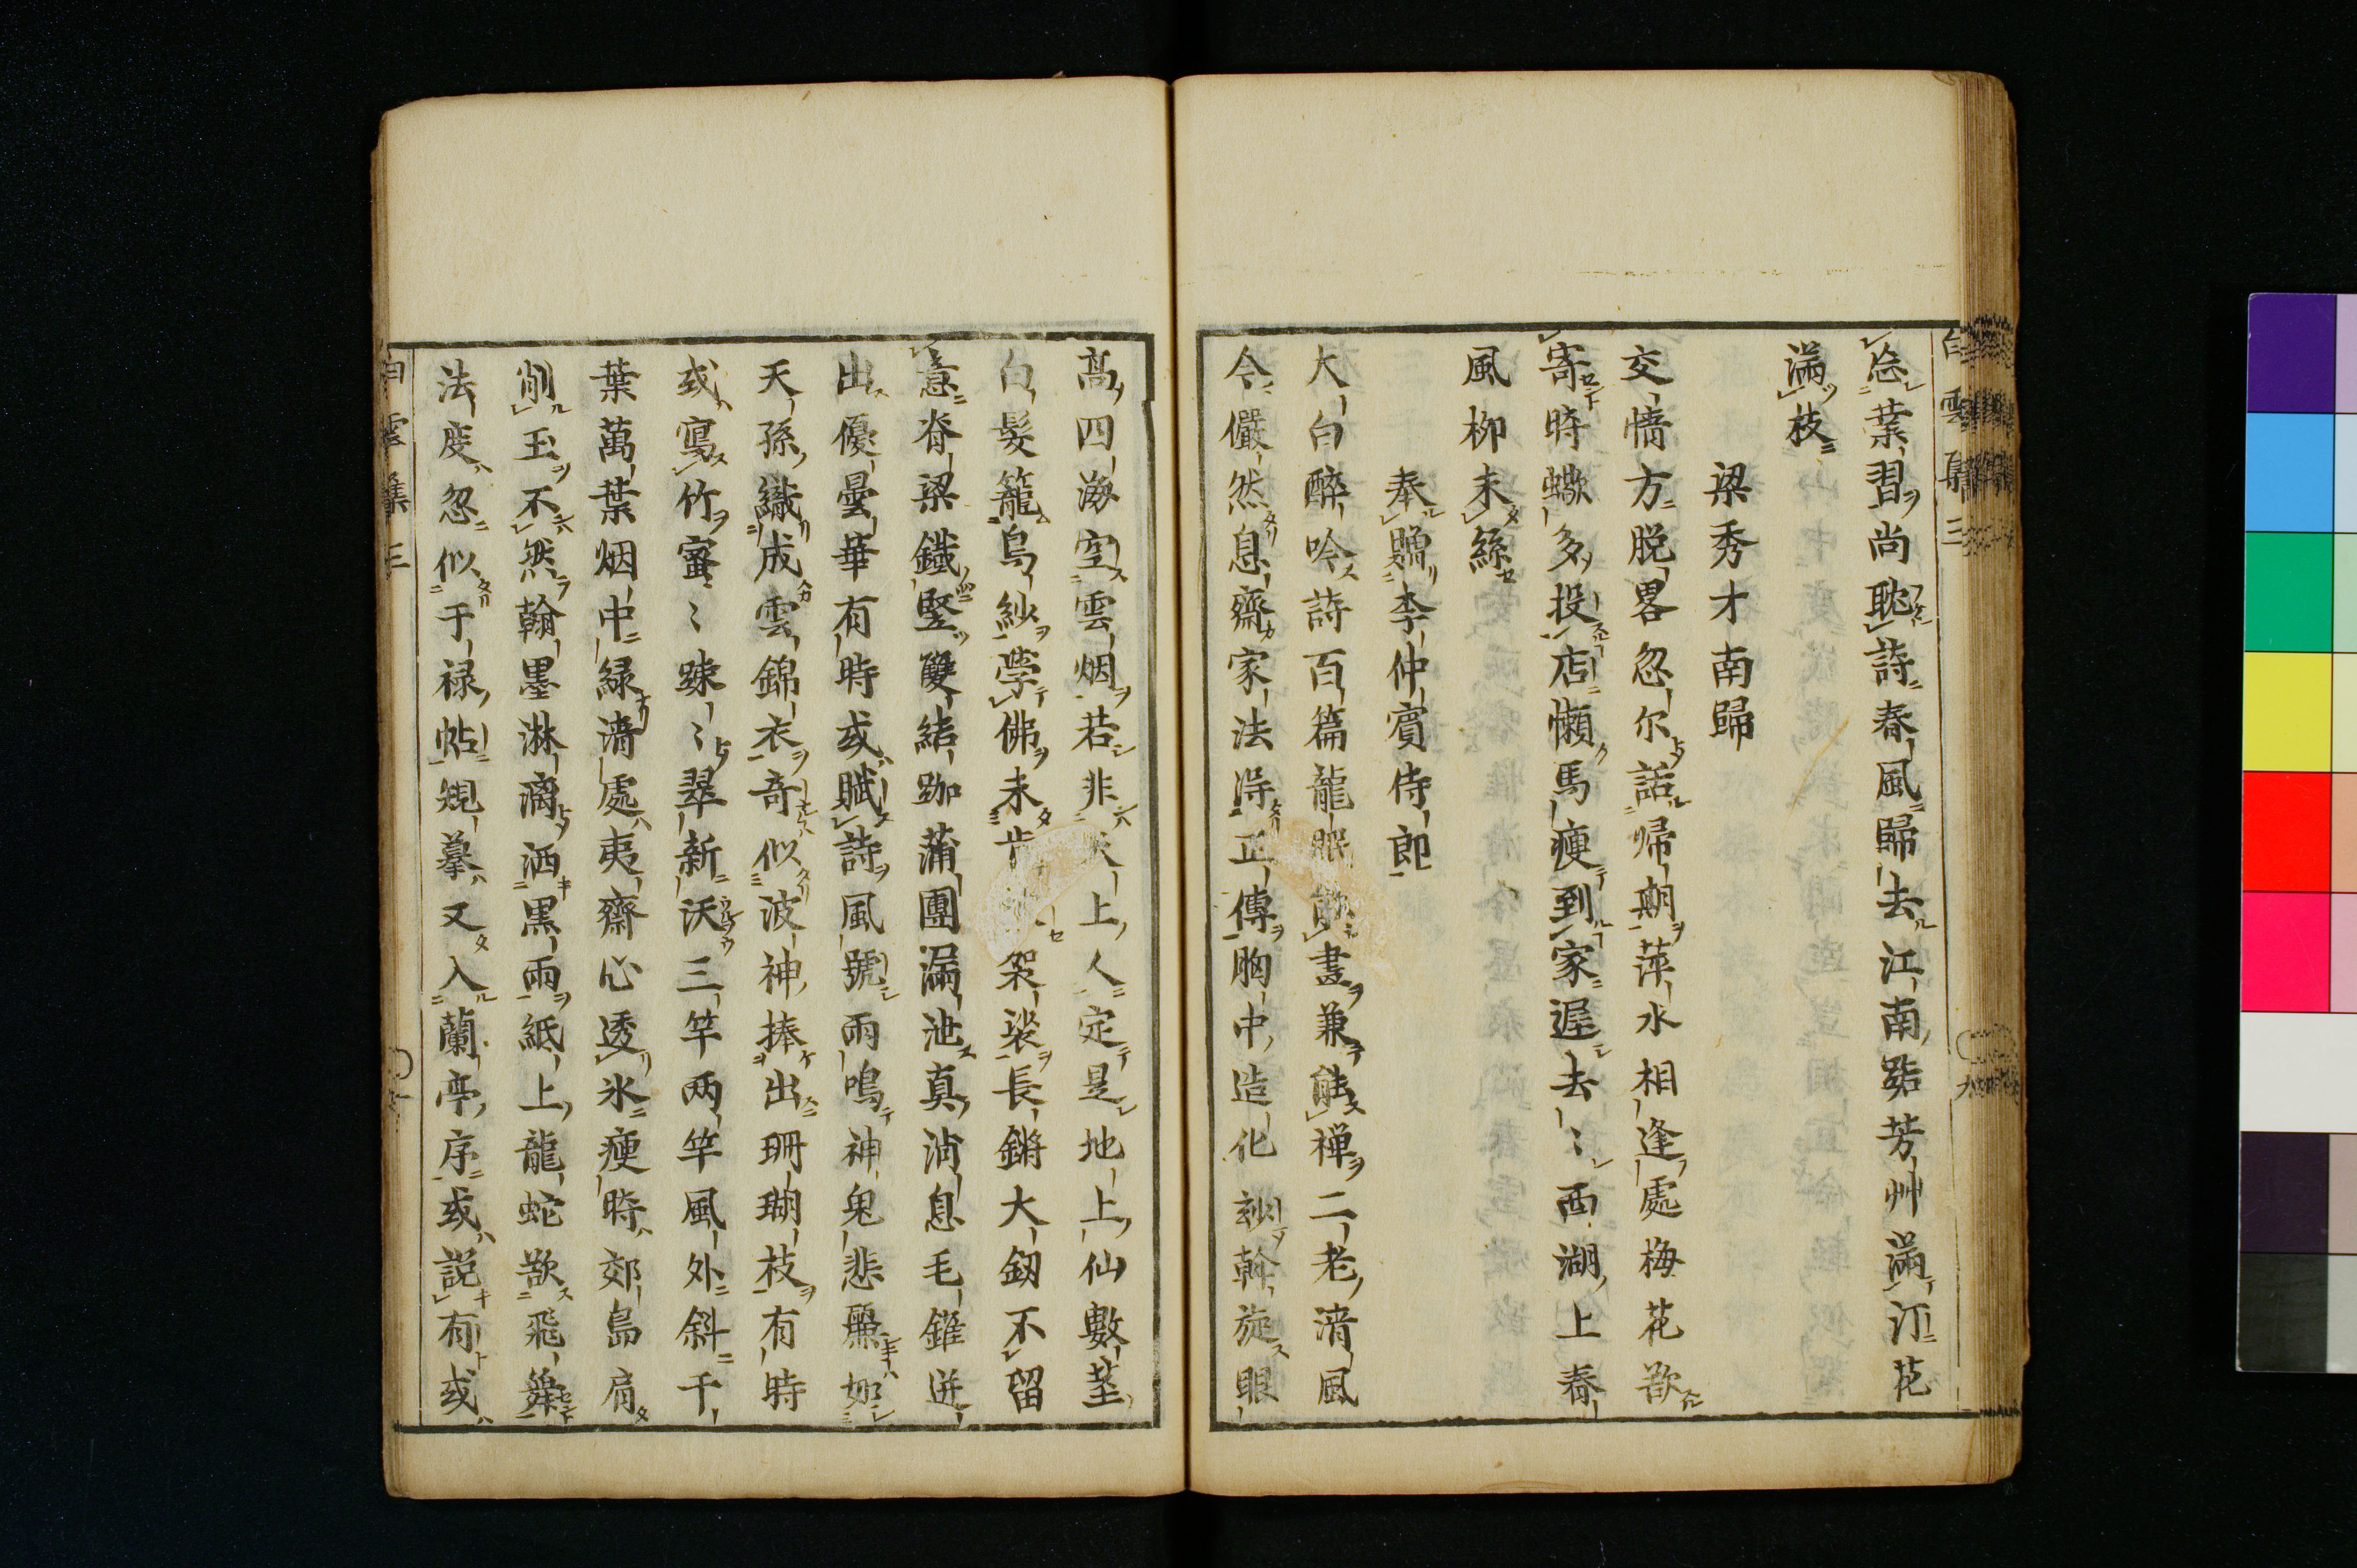 白雲集三
忩葉習尚耽詩春風歸去江南路芳艸滿汀花
滿枝
梁秀才南歸
交情方脱畧忽尔話帰期萍水相逢處梅花欲
寄時蠍多投店懶馬瘦到家遲去〻西湖上春
風柳未絲
奉贈李仲賓侍郎
大白醉吟詩百篇龍眠 畫兼能禅二老清風
令儼然息齋家法得正傳胸中造化 斡旋眼
高四海空雲烟若非 上人定是地上仙數莖
白髮籠烏紗學佛未 袈裟長鏘大劔不留
意脊梁鐵竪雙結跏蒲團漏泄真消息毛錐迸
出優曇華有時或賦詩風號雨鳴神鬼悲麗如
天孫織成雲錦衣奇似波神捧出珊瑚枝有時
或寫竹密〻踈〻翠新沃三竿两竿風外斜千
葉萬葉烟中緑清處夷齋心透氷瘦時郊島肩
削玉不然翰墨淋漓洒黒雨紙上龍蛇欲飛舞
法度忽似于禄帖規摹又入蘭亭序或説有或
白雲集三